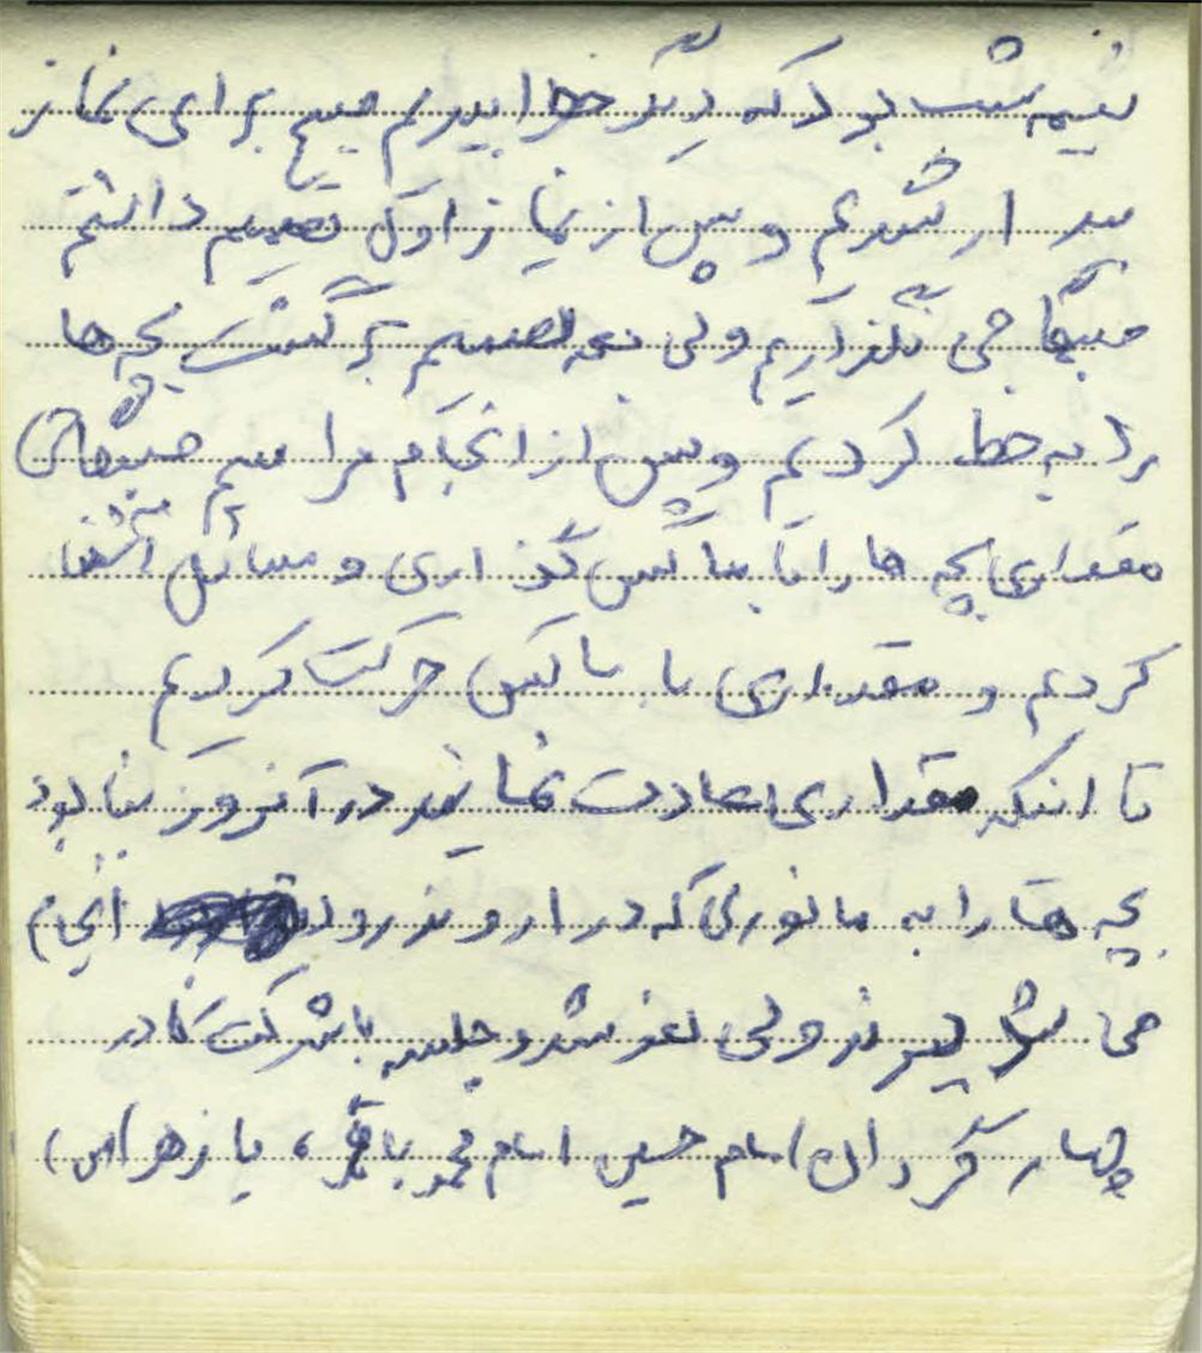 نیمه شب بود که دیگر خوابیدیم صبح برای نماز
بیدار شدیم و پس از نماز اول تصمیم داشتم
صبحگاهی نگذاریم ولی بعد تصمیم برگشت بچه ها
را به خط کردیم و پس از انجام مراسم صبحگاهی
مقداری بچه ها را با ماسک گذاری و مسائل آشنا
کردیم و مقداری با ماسک حرکت کردیم
تا اینکه مقداری عادت نمایند در آنروز بنا بود
بچه ها را به مانوری که در اروند رود انجام
می ولی لغو شد و جلسه با شرکت کادر
چهار گردان امام حسین امام محمد باقر، یا زهرا (س)